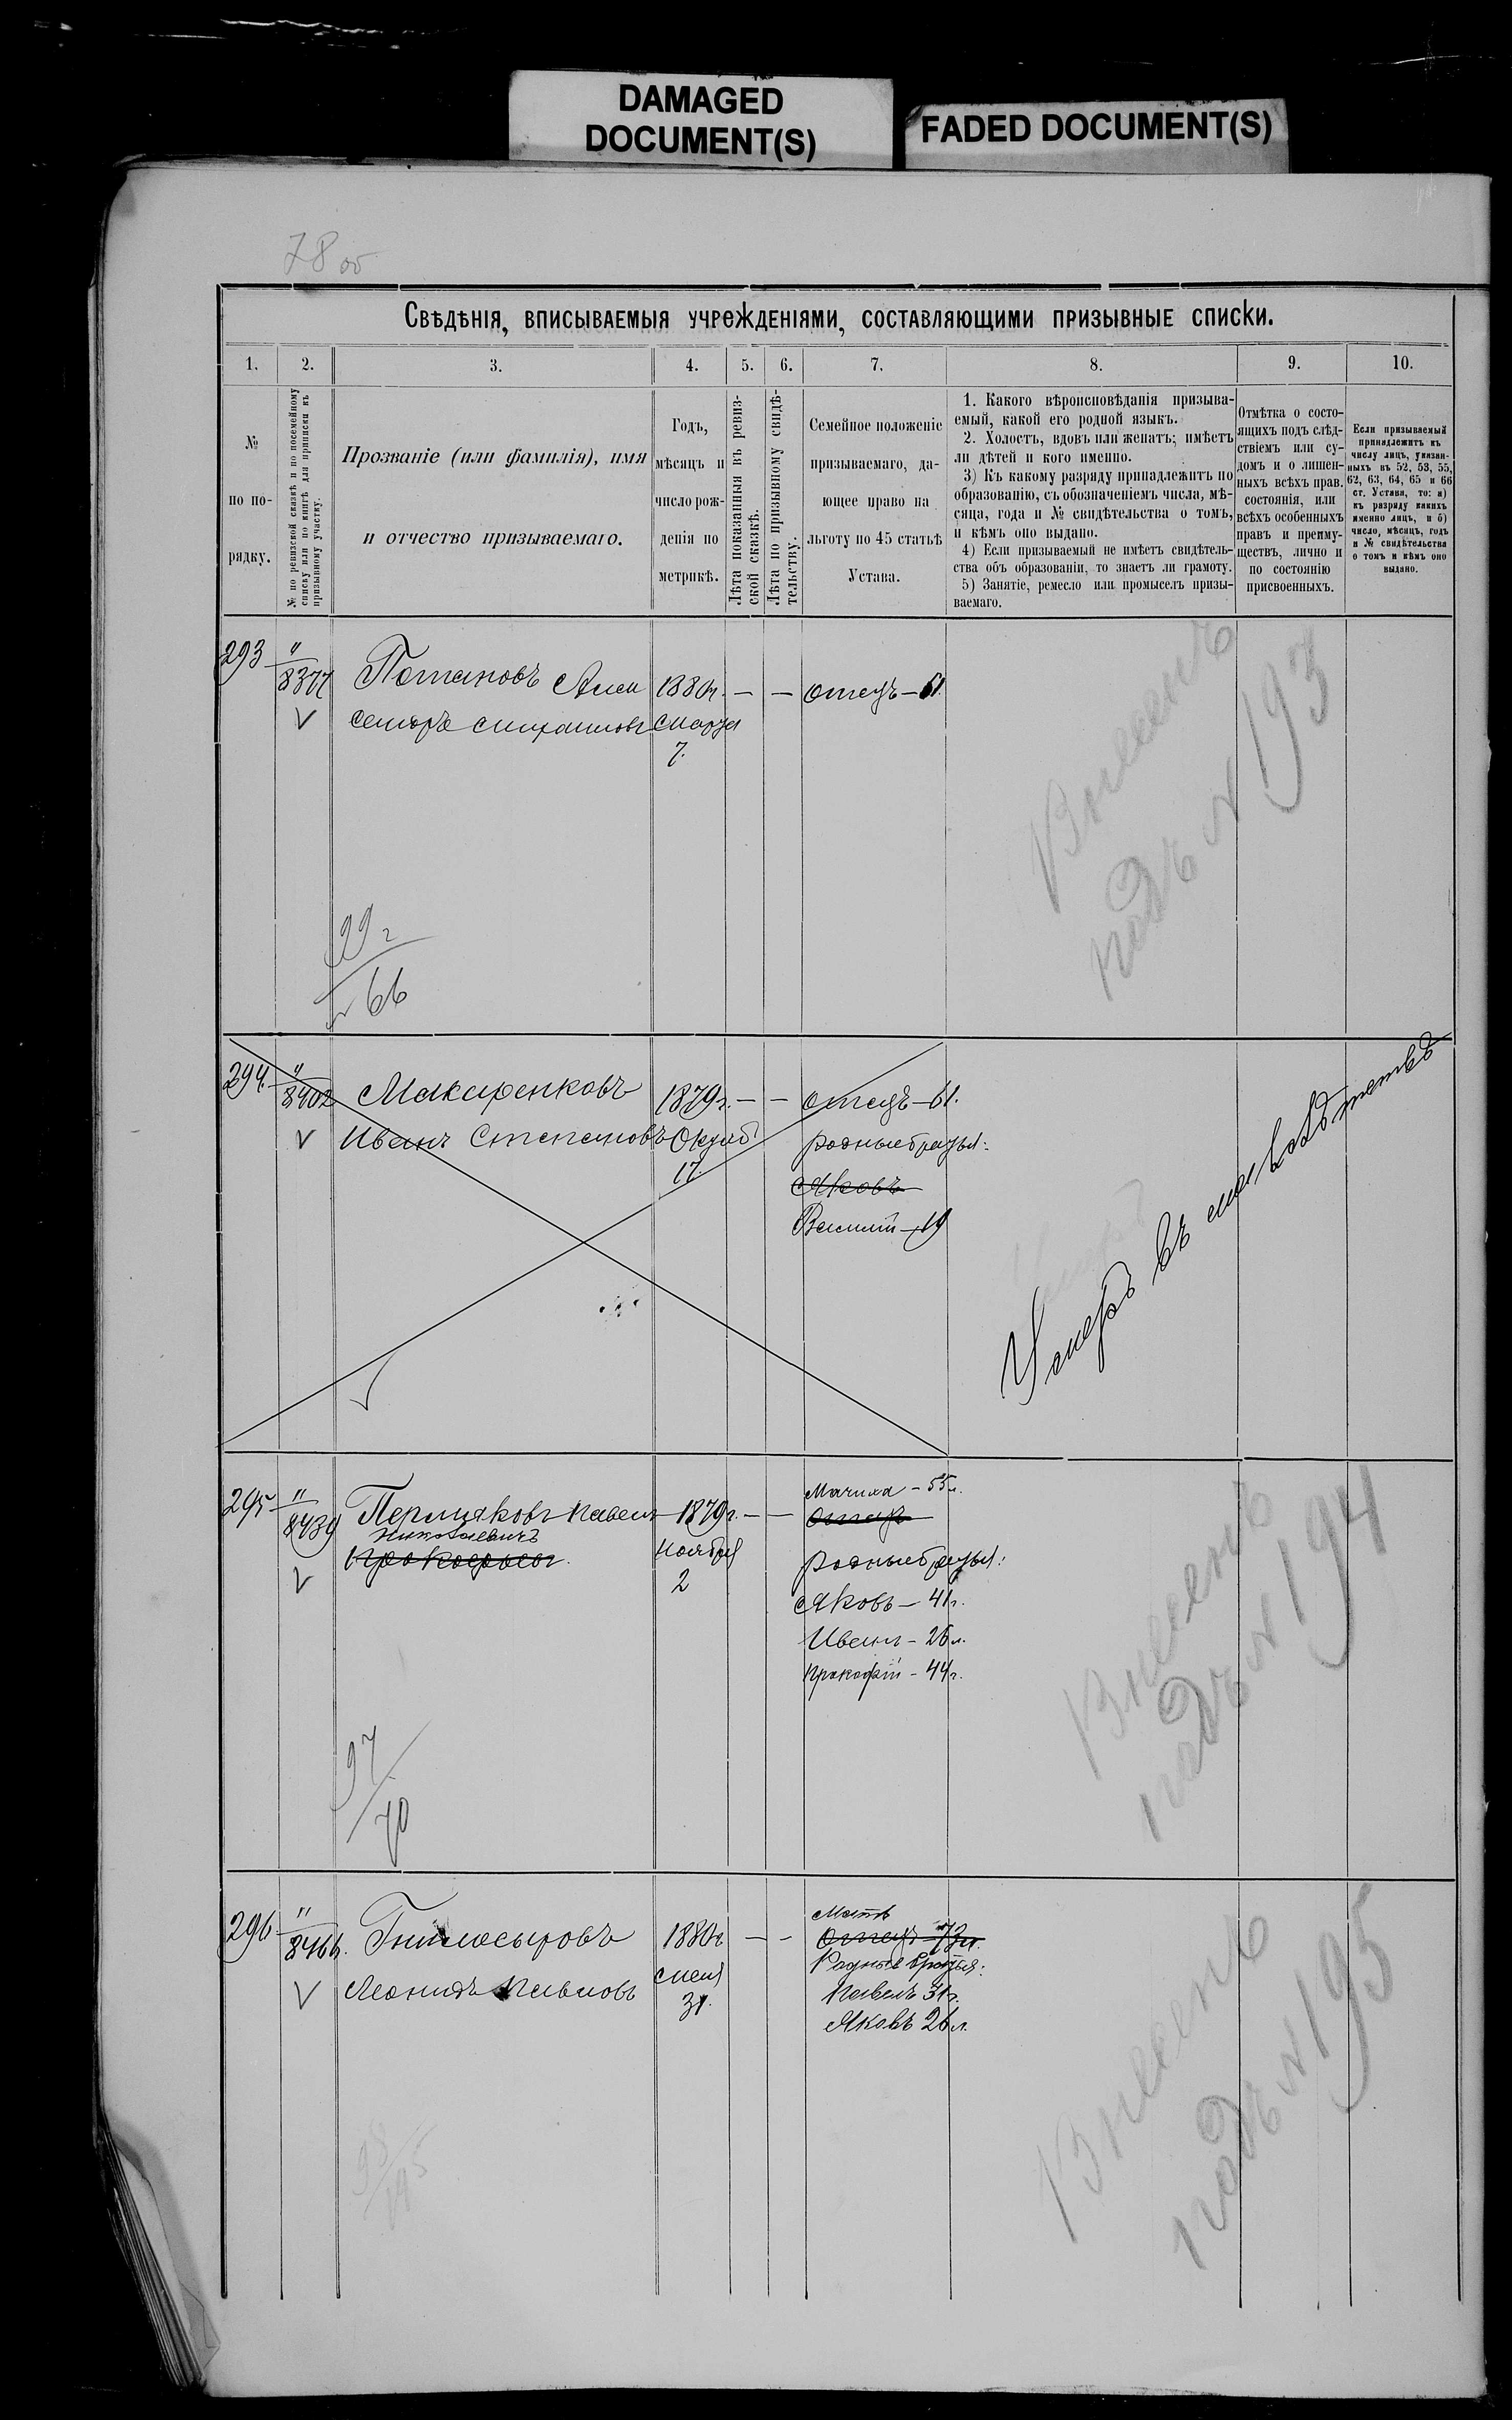 DAMAGED
DOCUMENT(S)
FADED DOCUMENT(S)
78 об
Свѣдѣнія, вписываемыя учрежденіями, составляющими призывные списки.
1. 2. 3. 4. 5. 6. 7. 8. 9. 10.
№
по по-
рядку.
№ по ревизской сказкѣ и по посемейному
списку или по книгѣ для приписки къ
призывному участку.
Прозваніе (или фамилія), имя
и отчество призываемаго.
Годъ,
мѣсяцъ и
число рож-
денія по
метрикѣ.
Лѣта показанныя въ ревиз-
ской сказкѣ.
Лѣта по призывному свидѣ-
тельству.
Семейное положеніе
призываемаго, да-
ющее право на
льготу по 45 статьѣ
Устава.
1. Какого вѣроисповѣданія призыва-
емый, какой его родной языкъ.
2. Холостъ, вдовъ или женатъ; имѣетъ
ли дѣтей и кого именно.
3) Къ какому разряду принадлежитъ по
образованію, съ обозначеніемъ числа, мѣ-
сяца, года и № свидѣтельства о томъ,
и кѣмъ оно выдано.
4) Если призываемый не имѣетъ свидѣтель-
ства объ образованіи, то знаетъ ли грамоту.
5) Занятіе, ремесло или промыселъ призы-
ваемаго.
Отмѣтка о состо-
ящихъ подъ слѣд-
ствіемъ или су-
домъ и о лишен-
ныхъ всѣхъ прав.
состоянія, или
всѣхъ особенныхъ
правъ и преиму-
ществъ, лично и
по состоянію
присвоенныхъ.
Если призываемый
принадлежитъ къ
числу лицъ, указан-
ныхъ въ 52, 53, 55,
62, 63, 64, 65 и 66
ст. Устава, то: а)
къ разряду какихъ
именно лицъ, и б)
число, мѣсяцъ, годъ
и № свидѣтельства
о томъ и кѣмъ оно
выдано.
293 " 8377 Потаповъ Алек 1880г. — — отецъ — 61.
сандръ Михаиловъ Марта
7.
Внесенъ
подъ № 193
99 г
66
294. " 8402 Макаренковъ 1879г. — — отецъ — 61.
Иванъ Степановъ Октяб
17.
родные братья:
Яковъ
Василій — 19
Умеръ въ
295 " 8439 Пермяковъ Павелъ 1879г. — — Мачиха — 55л.
Отецъ
Николаевичъ
Прокофьевъ
ноября
2
родные братья:
Яковъ — 41г.
Иванъ — 26л.
Прокофій — 44г.
Внесенъ
подъ № 194
97
70
296 " 8466. Гниломыровъ 1880г. — — Мать
отецъ 73л.
Леонидъ Павловъ Мая
31.
Родные братья:
Павелъ 31г.
Яковъ 26л.
Внесенъ
подъ № 195